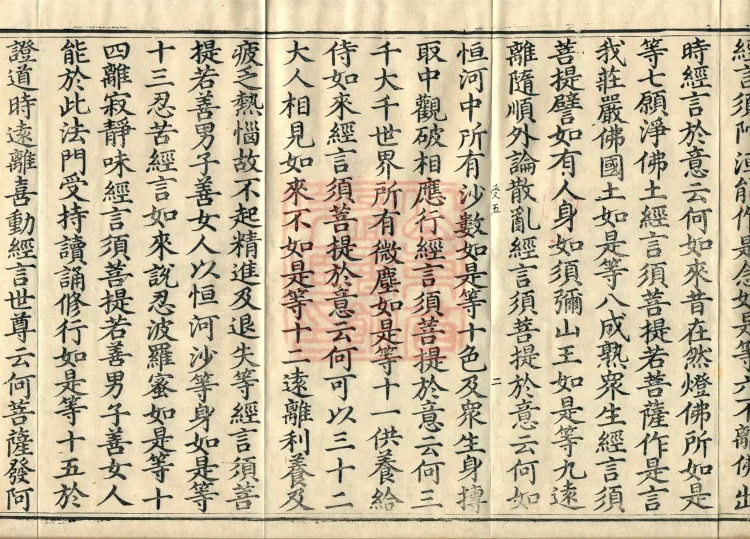 經言須陀洹能作是念如是等六不離佛出
時經言於意云何如來昔在然燈佛所如是
等七願淨佛土經言須菩提若菩薩作是言
我莊嚴佛國土如是等八成熟眾生經言須
菩提譬如有人身如須彌山王如是等九遠
離隨順外論散亂經言須菩提於意云何如
受五 二
恒河中所有沙數如是等十色及眾生身摶
取中觀破相應行經言須菩提於意云何三
千大千世界所有微塵如是等十一供養給
侍如來經言須菩提於意云何可以三十二
大人相見如來不如是等十二遠離利養及
疲乏熱惱故不起精進及退失等經言須菩
提若善男子善女人以恒河沙等身如是等
十三忍苦經言如來說忍波羅蜜如是等十
四離寂靜味經言須菩提若善男子善女人
能於此法門受持讀誦修行如是等十五於
證道時遠離喜動經言世尊云何菩薩發阿